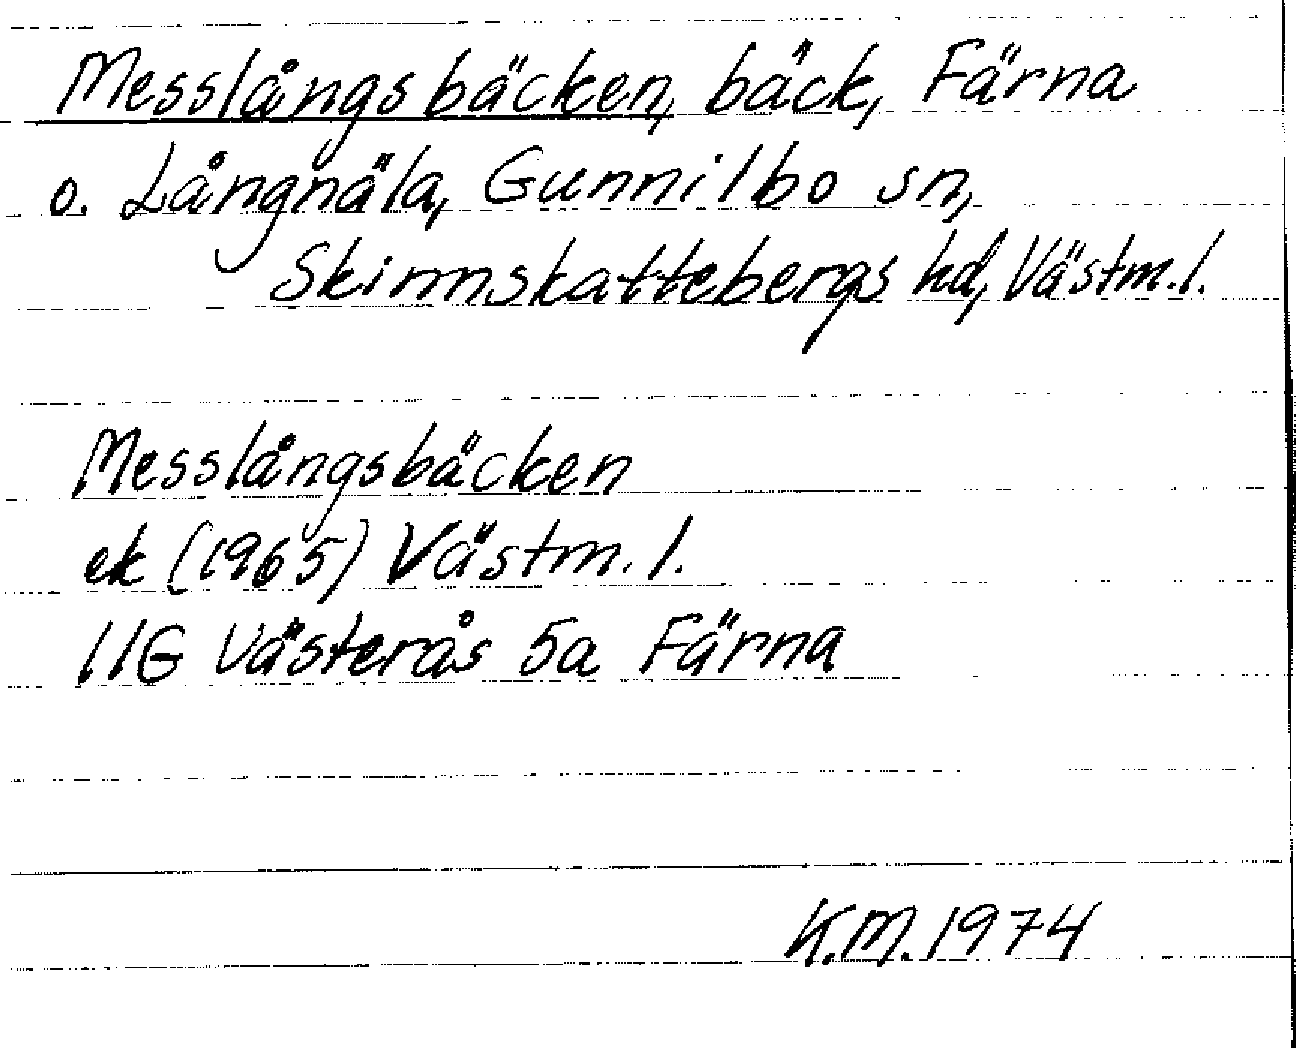 Messlångsbäcken, bäck, Färna
o. Långnäla, Gunnilbo sn,
Skinnskattebergs hd, Västm.l.
Messlångsbäcken
ek (1965) Västm.l.
11G Västerås 5a Färna
K.M. 1974